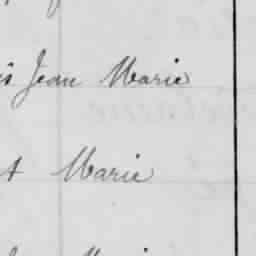 is Jean Marie
t Marie